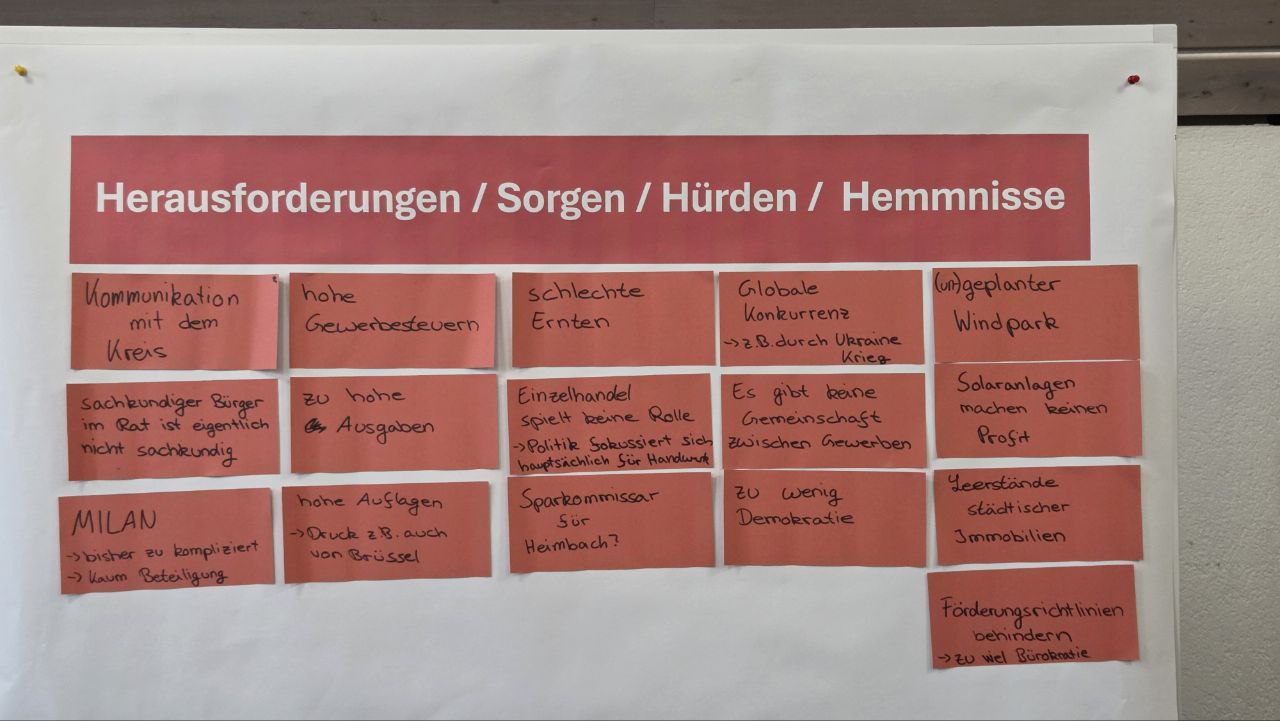 Herausforderungen / Sorgen / Hürden / Hemmnisse
Kommunikation
mit dem
Kreis
hohe
Gewerbesteuern
schlechte
Ernten
Globale
Konkurrenz
-> z.B. durch Ukraine
Krieg
(un)geplanter
Windpark
sachkundiger Bürger
im Rat ist eigentlich
nicht sachkundig
zu hohe
Ausgaben
Einzelhandel
spielt keine Rolle
-> Politik fokussiert sich
hauptsächlich für Handwerk
Es gibt keine
Gemeinschaft
zwischen Gewerben
Solaranlagen
machen keinen
Profit
MILAN
-> bisher zu kompliziert
-> Kaum Beteiligung
hohe Auflagen
-> Druck z.B. auch
von Brüssel
Sparkommissar
für
Heimbach?
zu wenig
Demokratie
Leerstände
städtischer
Immobilien
Förderungsrichtlinien
behindern
-> zu viel Bürokratie